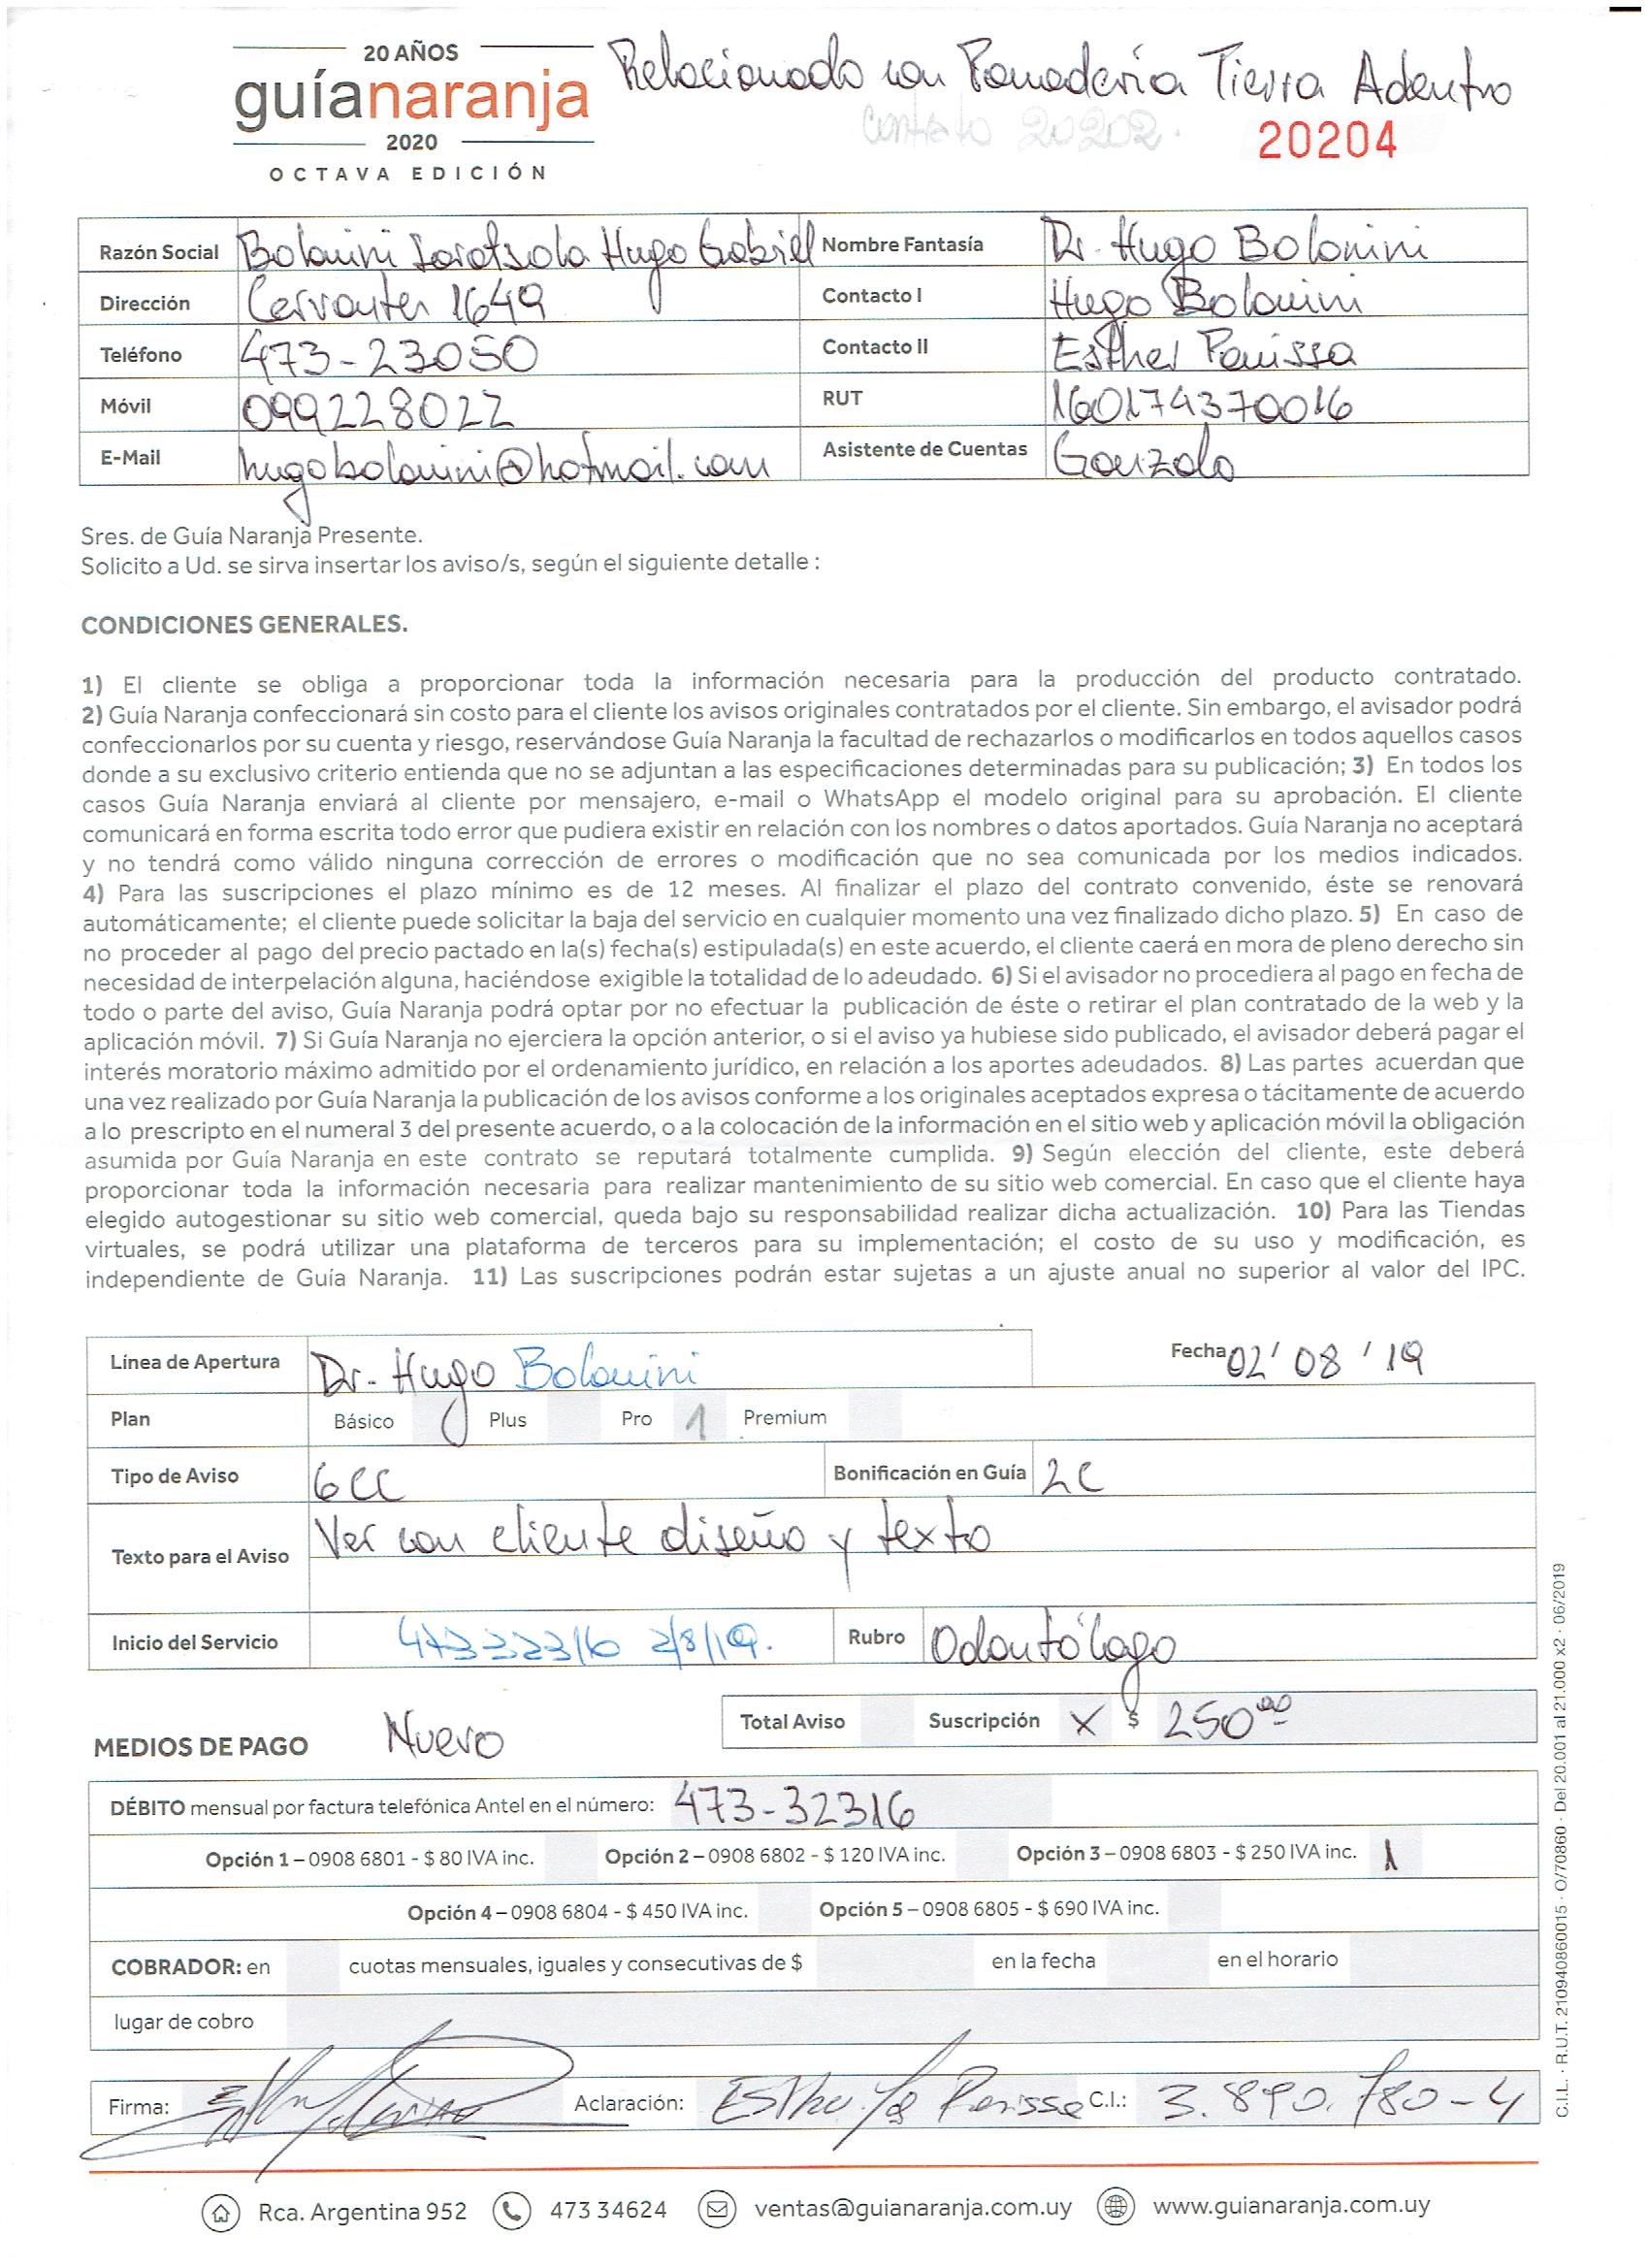 20 AÑOS
guíanaranja
2020
OCTAVA EDICIÓN
Relacionado con Panadería Tierra Adentro
Contrato 20202.
20204
Razón Social Bolanini Hugo Gabriel Nombre Fantasía Dr. Hugo Bolanini
Dirección Cervantes 1649 Contacto I Hugo Bolanini
Teléfono 473-23050 Contacto II Esther Panissa
Móvil 099228022 RUT 160174370016
E-Mail hugobolanini@hotmail.com Asistente de Cuentas Gonzalo
Sres. de Guía Naranja Presente.
Solicito a Ud. se sirva insertar los aviso/s, según el siguiente detalle :
CONDICIONES GENERALES.
1) El cliente se obliga a proporcionar toda la información necesaria para la producción del producto contratado.
2) Guía Naranja confeccionará sin costo para el cliente los avisos originales contratados por el cliente. Sin embargo, el avisador podrá
confeccionarlos por su cuenta y riesgo, reservándose Guía Naranja la facultad de rechazarlos o modificarlos en todos aquellos casos
donde a su exclusivo criterio entienda que no se adjuntan a las especificaciones determinadas para su publicación; 3) En todos los
casos Guía Naranja enviará al cliente por mensajero, e-mail o WhatsApp el modelo original para su aprobación. El cliente
comunicará en forma escrita todo error que pudiera existir en relación con los nombres o datos aportados. Guía Naranja no aceptará
y no tendrá como válido ninguna corrección de errores o modificación que no sea comunicada por los medios indicados.
4) Para las suscripciones el plazo mínimo es de 12 meses. Al finalizar el plazo del contrato convenido, éste se renovará
automáticamente; el cliente puede solicitar la baja del servicio en cualquier momento una vez finalizado dicho plazo. 5) En caso de
no proceder al pago del precio pactado en la(s) fecha(s) estipulada(s) en este acuerdo, el cliente caerá en mora de pleno derecho sin
necesidad de interpelación alguna, haciéndose exigible la totalidad de lo adeudado. 6) Si el avisador no procediera al pago en fecha de
todo o parte del aviso, Guía Naranja podrá optar por no efectuar la publicación de éste o retirar el plan contratado de la web y la
aplicación móvil. 7) Si Guía Naranja no ejerciera la opción anterior, o si el aviso ya hubiese sido publicado, el avisador deberá pagar el
interés moratorio máximo admitido por el ordenamiento jurídico, en relación a los aportes adeudados. 8) Las partes acuerdan que
una vez realizado por Guía Naranja la publicación de los avisos conforme a los originales aceptados expresa o tácitamente de acuerdo
a lo prescripto en el numeral 3 del presente acuerdo, o a la colocación de la información en el sitio web y aplicación móvil la obligación
asumida por Guía Naranja en este contrato se reputará totalmente cumplida. 9) Según elección del cliente, este deberá
proporcionar toda la información necesaria para realizar mantenimiento de su sitio web comercial. En caso que el cliente haya
elegido autogestionar su sitio web comercial, queda bajo su responsabilidad realizar dicha actualización. 10) Para las Tiendas
virtuales, se podrá utilizar una plataforma de terceros para su implementación; el costo de su uso y modificación, es
independiente de Guía Naranja. 11) Las suscripciones podrán estar sujetas a un ajuste anual no superior al valor del IPC.
Línea de Apertura Dr. Hugo Bolanini Fecha 02' 08 ' 19
Plan Básico Plus Pro 1 Premium
Tipo de Aviso 6CC Bonificación en Guía 2C
Texto para el Aviso Ver con cliente diseño y texto
Inicio del Servicio 47332316 2/8/19. Rubro Odontólogo
MEDIOS DE PAGO Nuevo Total Aviso Suscripción X $ 250⁰⁰
DÉBITO mensual por factura telefónica Antel en el número: 473-32316
Opción 1 – 0908 6801 - $ 80 IVA inc. Opción 2 – 0908 6802 - $ 120 IVA inc. Opción 3 – 0908 6803 - $ 250 IVA inc. 1
Opción 4 – 0908 6804 - $ 450 IVA inc. Opción 5 – 0908 6805 - $ 690 IVA inc.
COBRADOR: en cuotas mensuales, iguales y consecutivas de $ en la fecha en el horario
lugar de cobro
Firma: Aclaración: C.I.: 3.890.780-4
Rca. Argentina 952 473 34624 ventas@guianaranja.com.uy www.guianaranja.com.uy
C.I.L. · R.U.T. 210940860015 · O/70860 · Del 20.001 al 21.000 x2 · 06/2019